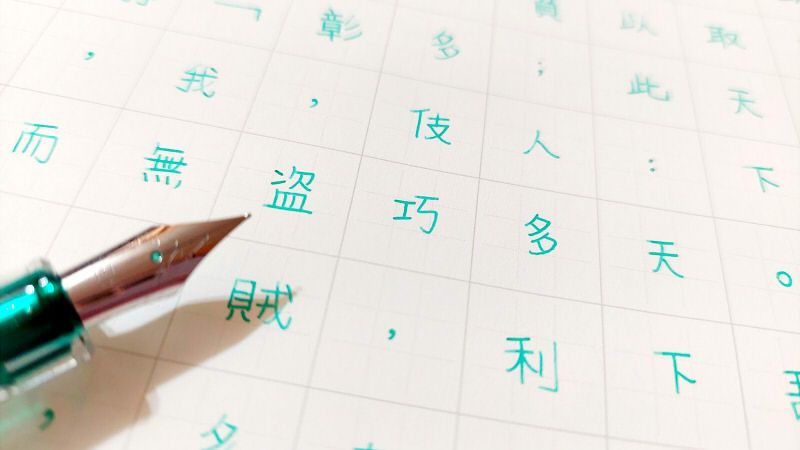 取天下。
以此：天下
貧；人多利
多伎巧，
彰，盜賊多
「我無
，而